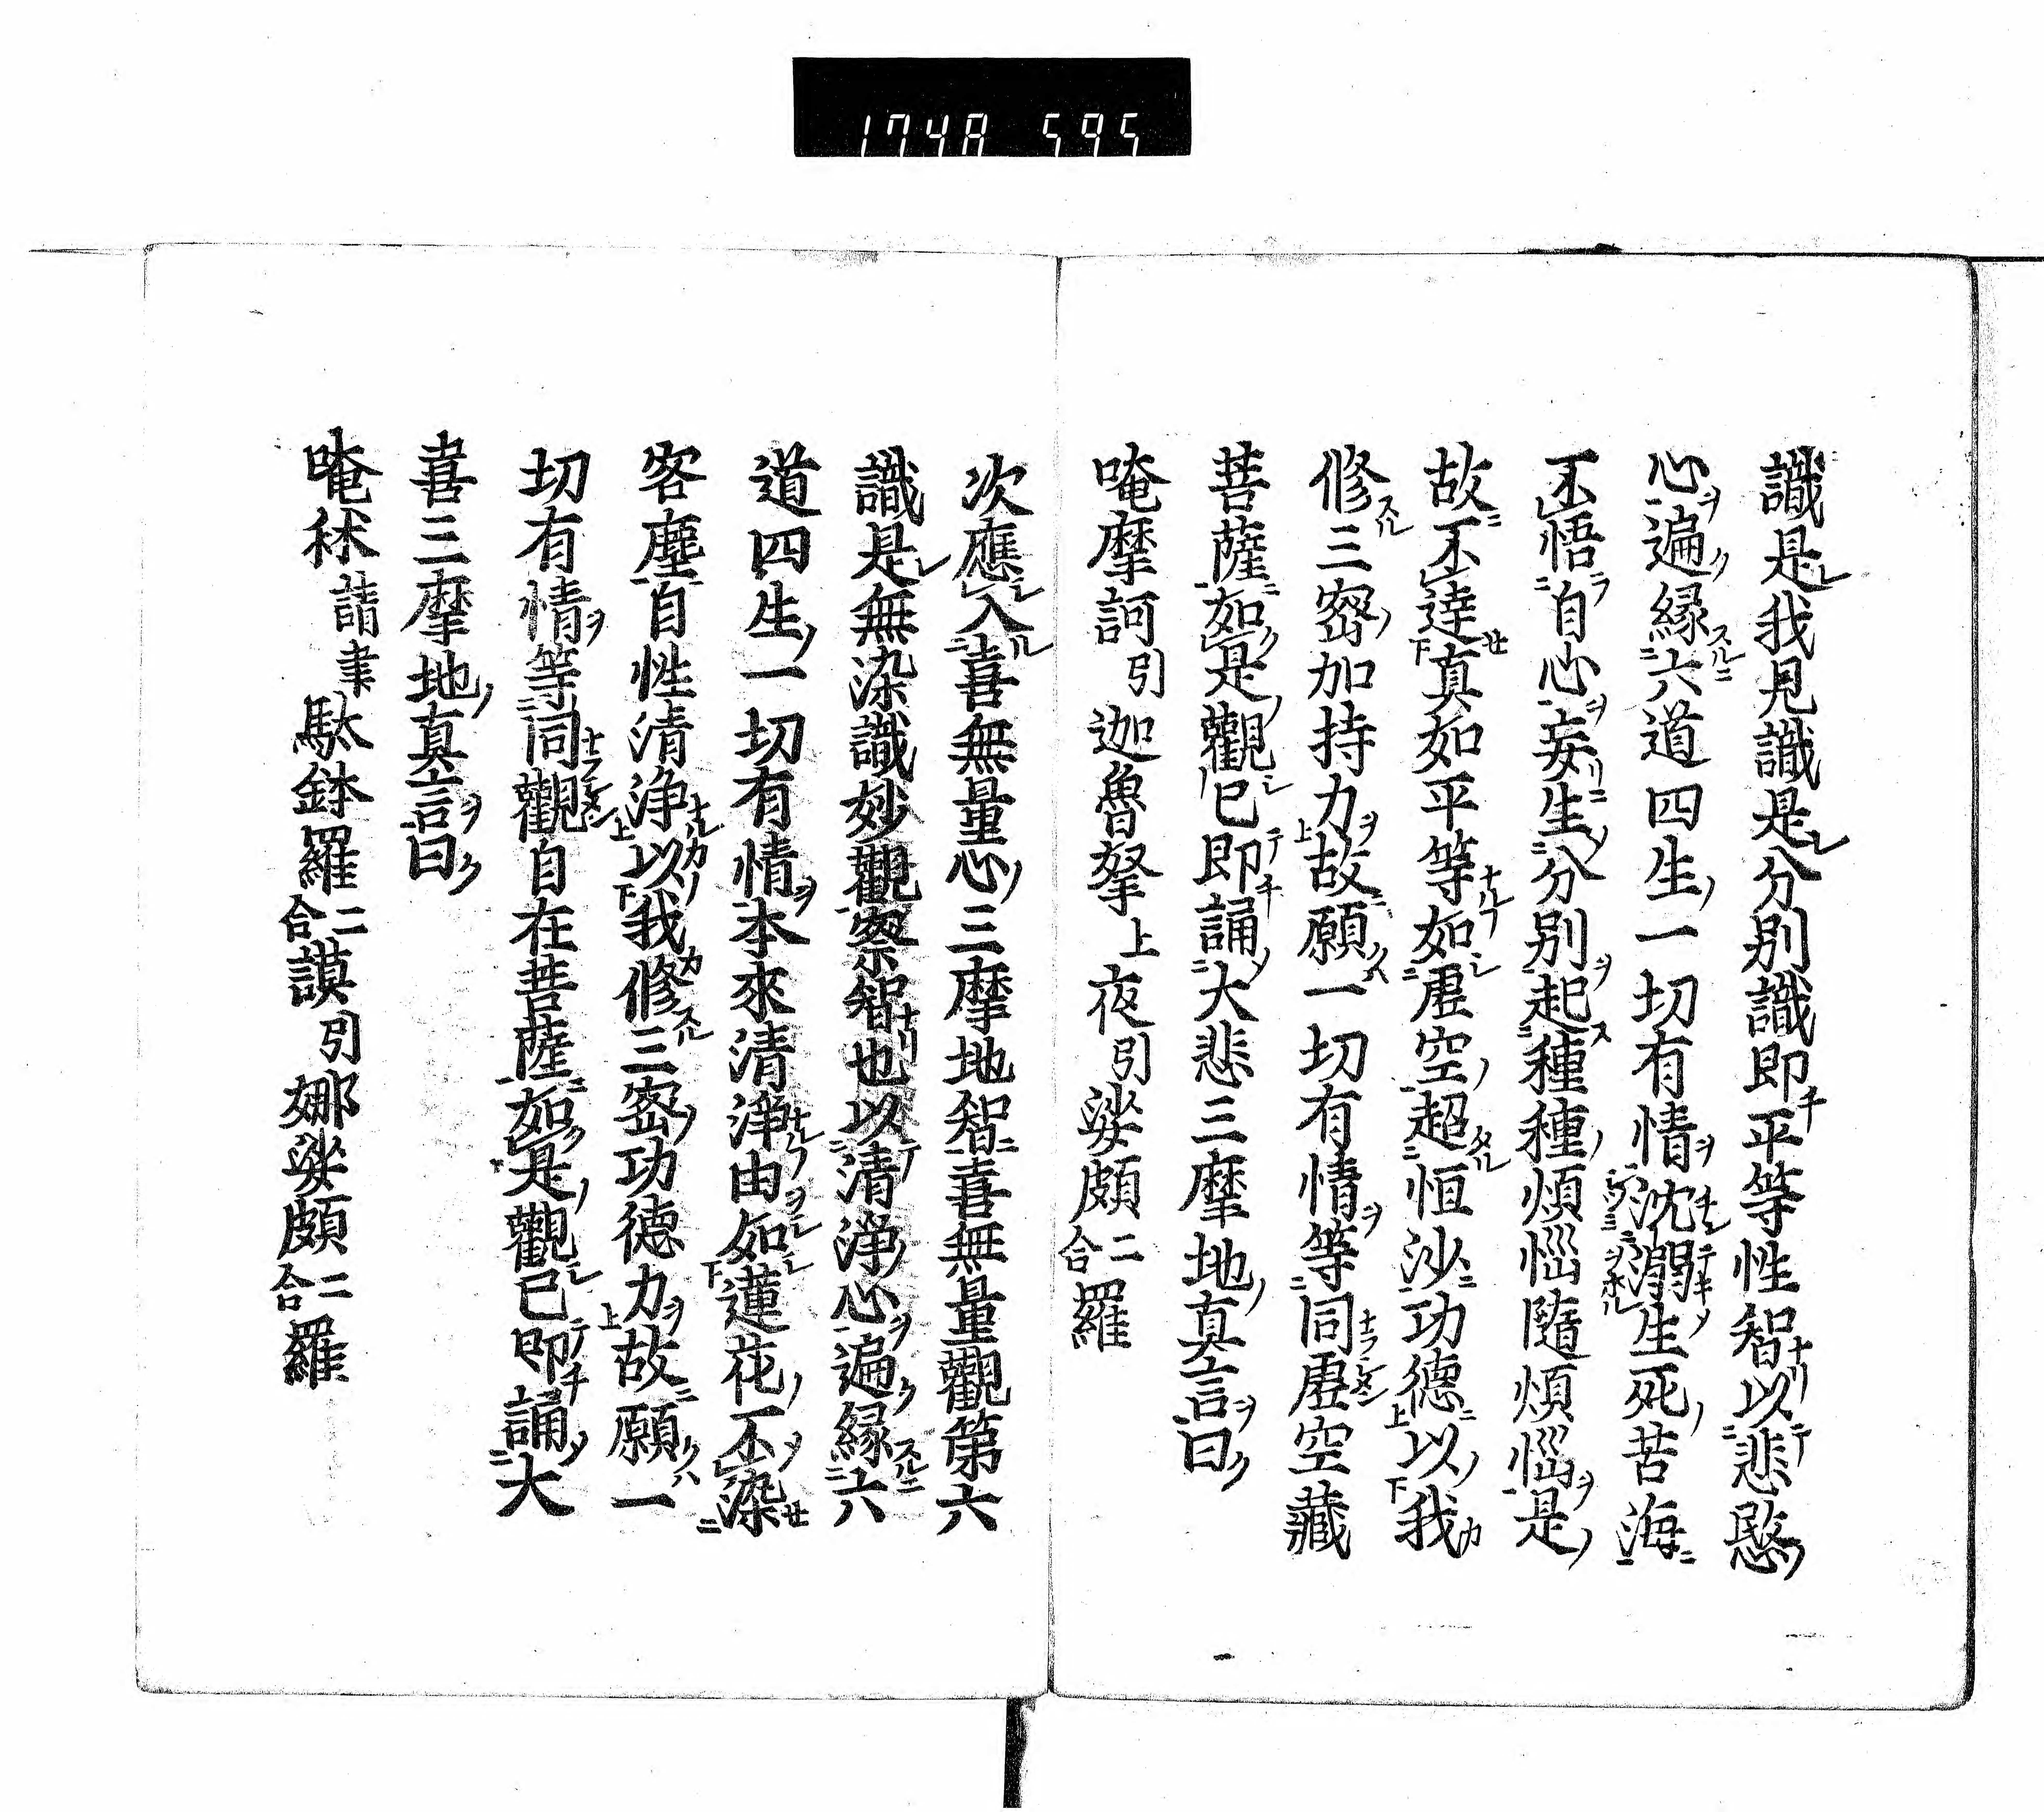 1748 595
識是我見識是分別識即平等性智以悲愍
心遍縁六道四生一切有情沈溺生死苦海
不悟自心妄生分別起種種煩惱隨煩惱是
故不達真如平等如虚空超恒沙功德以我
修三密加持力故願一切有情等同虚空藏
菩薩如是觀已即誦大悲三摩地真言曰
唵摩訶引迦魯拏上夜引娑頗二合羅
次應入喜無量心三摩地智喜無量觀第六
識是無染識妙觀察智也以清淨心遍縁六
道四生一切有情本來清淨由如蓮花不染
客塵自性清淨以我修三密功德力故願一
切有情等同觀自在菩薩如是觀已即誦大
喜三摩地真言曰
唵秫詰聿馱鉢羅二合謨引娜娑頗二合羅